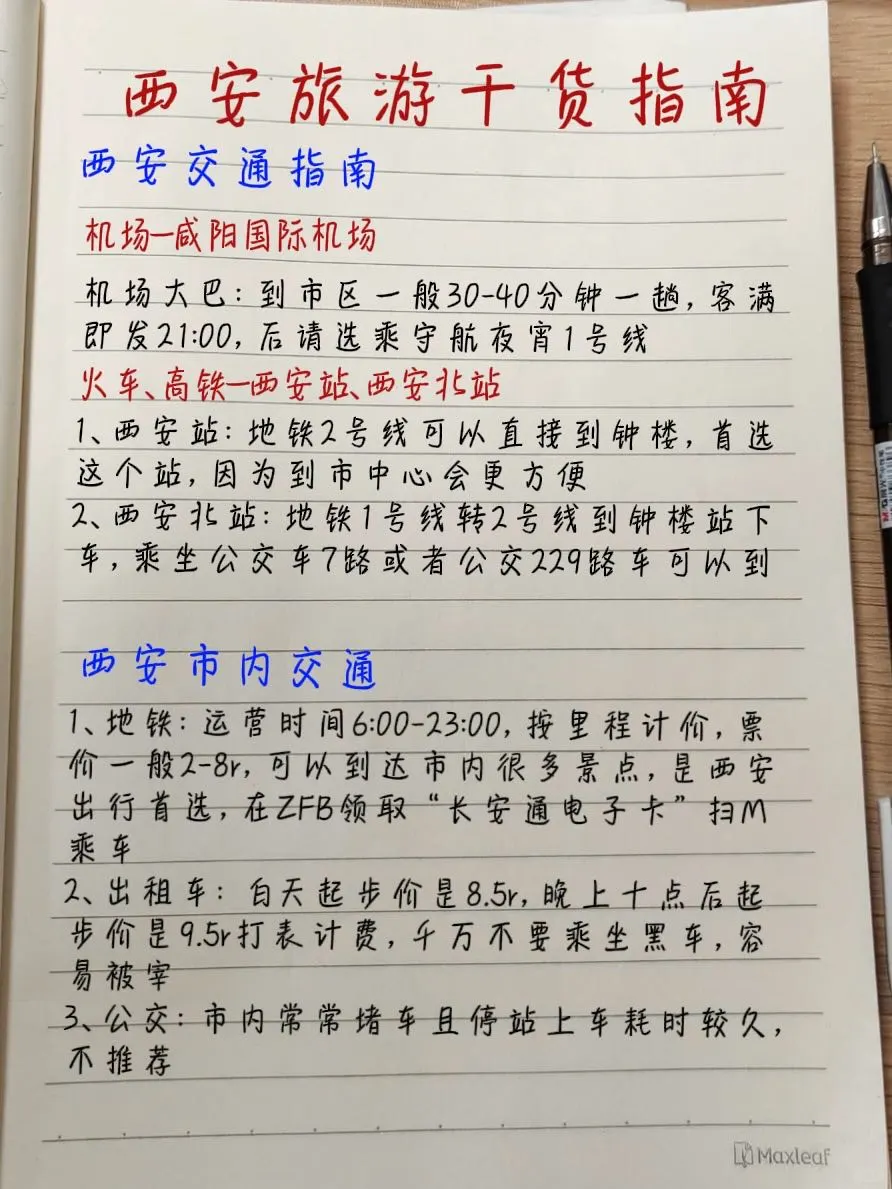 西安旅游干货指南
西安交通指南
机场—咸阳国际机场
机场大巴:到市区一般30-40分钟一趟,客满
即发21:00,后请选乘守航夜宵1号线
火车、高铁—西安站、西安北站
1、西安站:地铁2号线可以直接到钟楼,首选
这个站,因为到市中心会更方便
2、西安北站:地铁1号线转2号线到钟楼站下
车,乘坐公交车7路或者公交229路车可以到
西安市内交通
1、地铁:运营时间6:00-23:00,按里程计价,票
价一般2-8r,可以到达市内很多景点,是西安
出行首选,在ZFB领取“长安通电子卡”扫M
乘车
2、出租车:白天起步价是8.5r,晚上十点后起
步价是9.5r打表计费,千万不要乘坐黑车,容
易被宰
3、公交:市内常常堵车且停站上车耗时较久,
不推荐
Maxleaf